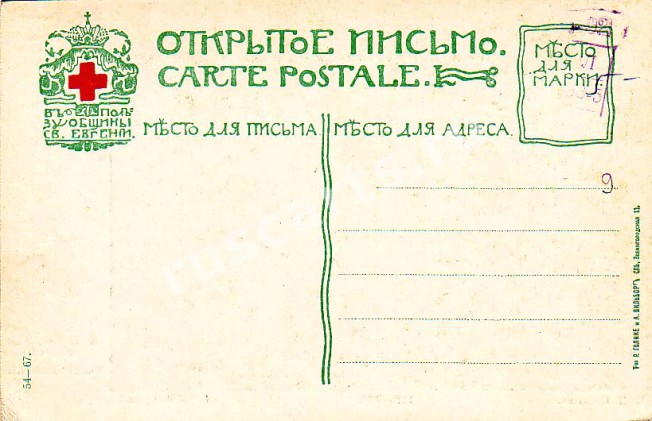 ОТКРЫТОЕ ПИСЬМО.
CARTE POSTALE.
МѢСТО
ДЛЯ
МАРКИ
ВЪ ПОЛЬ
ЗУ ОБЩИНЫ
СВ. ЕВГЕНІИ.
МѢСТО ДЛЯ ПИСЬМА.
МѢСТО ДЛЯ АДРЕСА.
9
54—67.
Тип. Р. ГОЛИКЕ и А. ВИЛЬБОРГЪ. СПБ. Звенигородская 11.